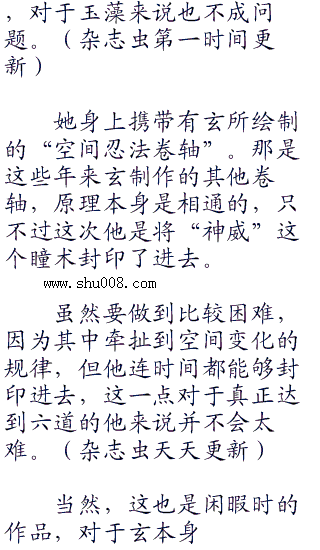 ，对于玉藻来说也不成问
题。（杂志虫第一时间更
新）
她身上携带有玄所绘制
的“空间忍法卷轴”。那是
这些年来玄制作的其他卷
轴，原理本身是相通的，只
不过这次他是将“神威”这
个瞳术封印了进去。
www.shu008.com
虽然要做到比较困难，
因为其中牵扯到空间变化的
规律，但他连时间都能够封
印进去，这一点对于真正达
到六道的他来说并不会太
难。（杂志虫天天更新）
当然，这也是闲暇时的
作品，对于玄本身